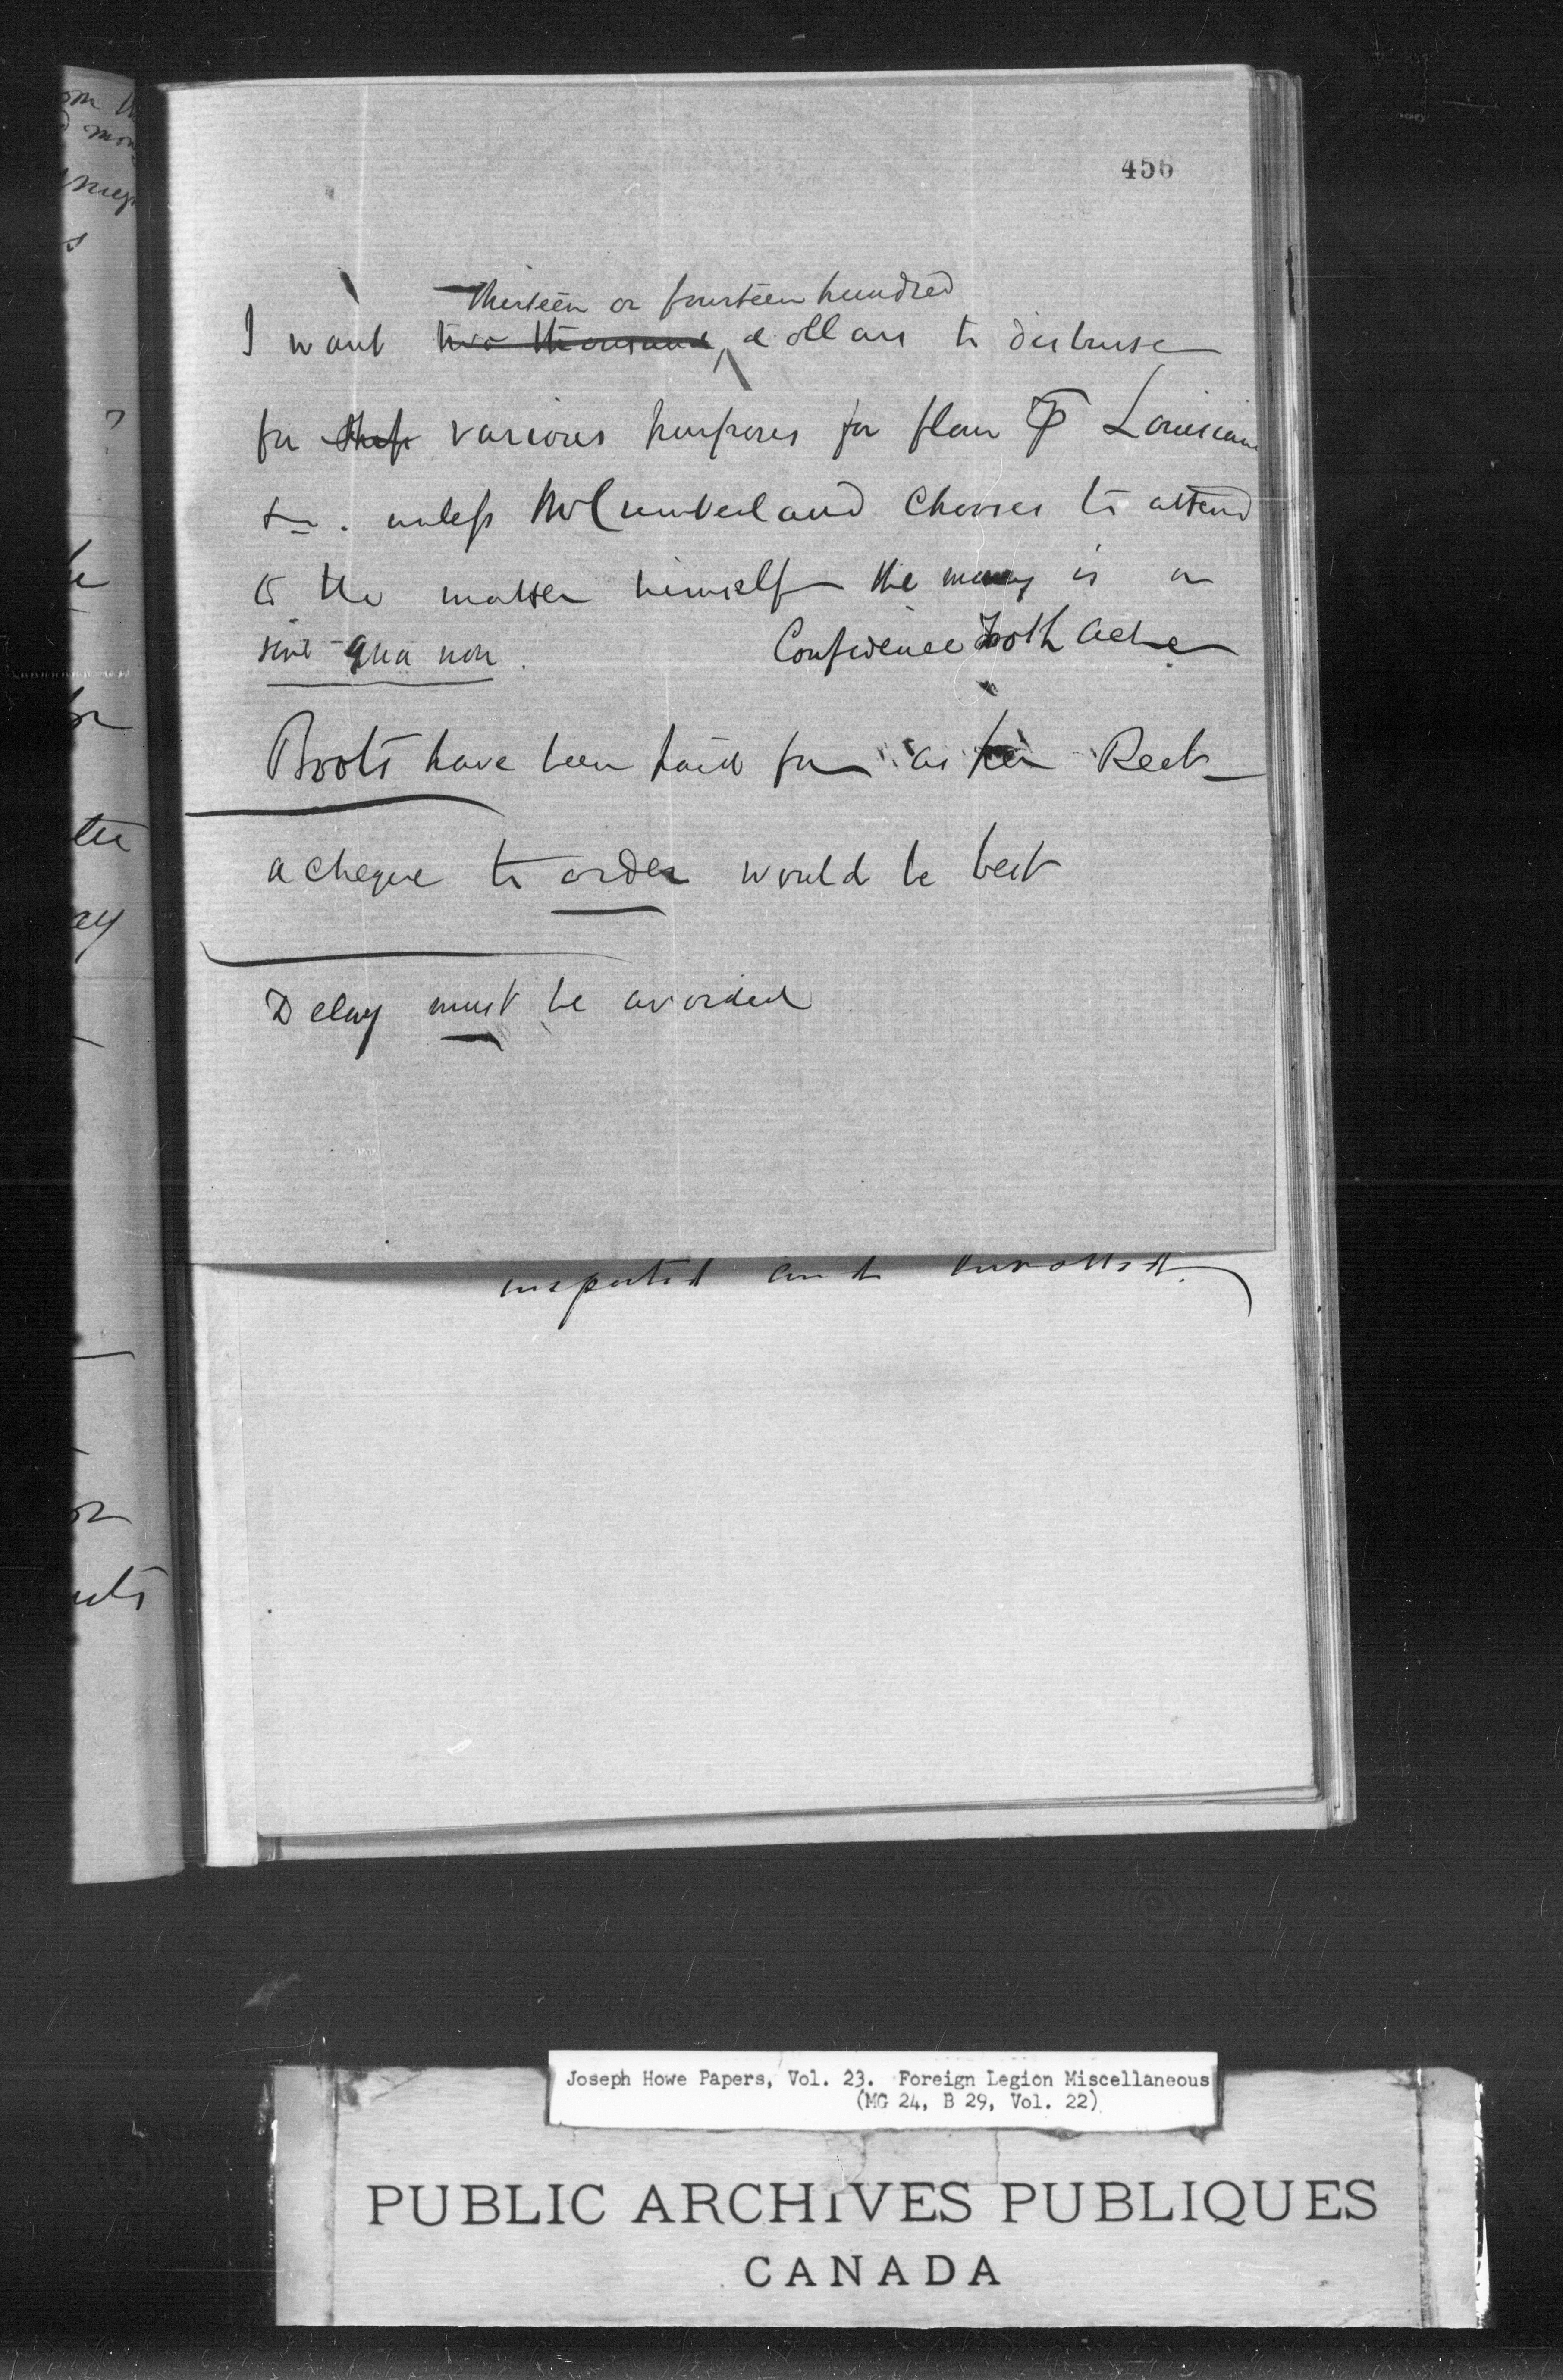 456
thirteen or fourteen hundred
I want two thousand, dollars to disburse
for various purposes for flour Louisiana
&c. unless Mr Cumberland chooses to attend
to the matter himself the money is a
sine qua non. Confidence both
Boots have been paid for as per Rect
a cheque to order would be best
Delay must be avoided
inspected and enrolled.
Joseph Howe Papers, Vol. 23. Foreign Legion Miscellaneous
(MG 24, B 29, Vol. 22)
PUBLIC ARCHIVES PUBLIQUES
CANADA